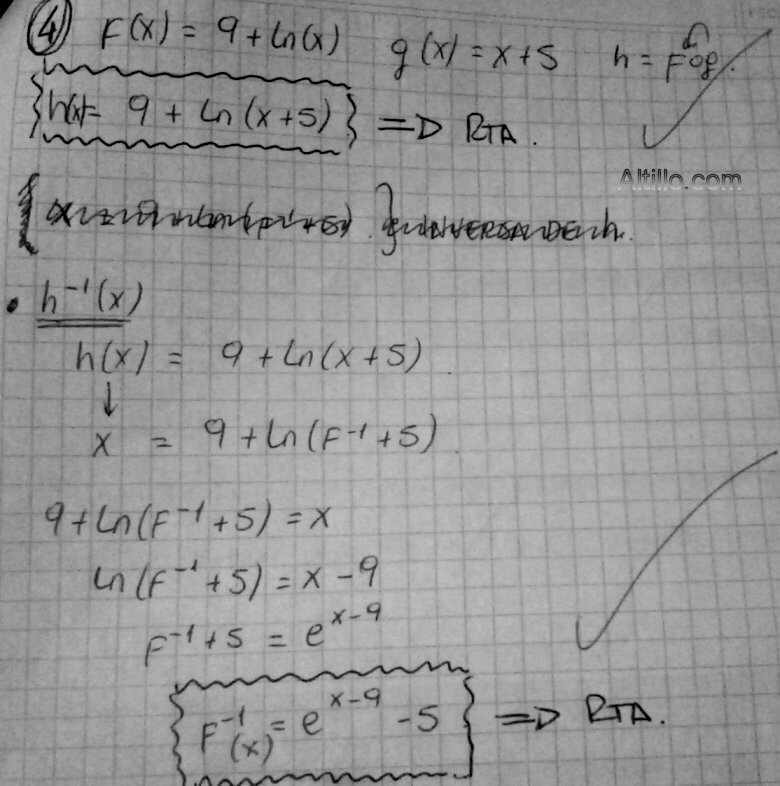 ④ F(x) = 9 + Ln(x) g(x) = x + 5 h = Fog.
h(x) = 9 + Ln(x+5) => RTA.
Altillo.com
h⁻¹(x)
h(x) = 9 + Ln(x+5)
↓
x = 9 + Ln(F⁻¹+5)
9 + Ln(F⁻¹+5) = x
Ln(F⁻¹+5) = x - 9
F⁻¹+5 = e^(x-9)
F⁻¹(x) = e^(x-9) - 5 => RTA.